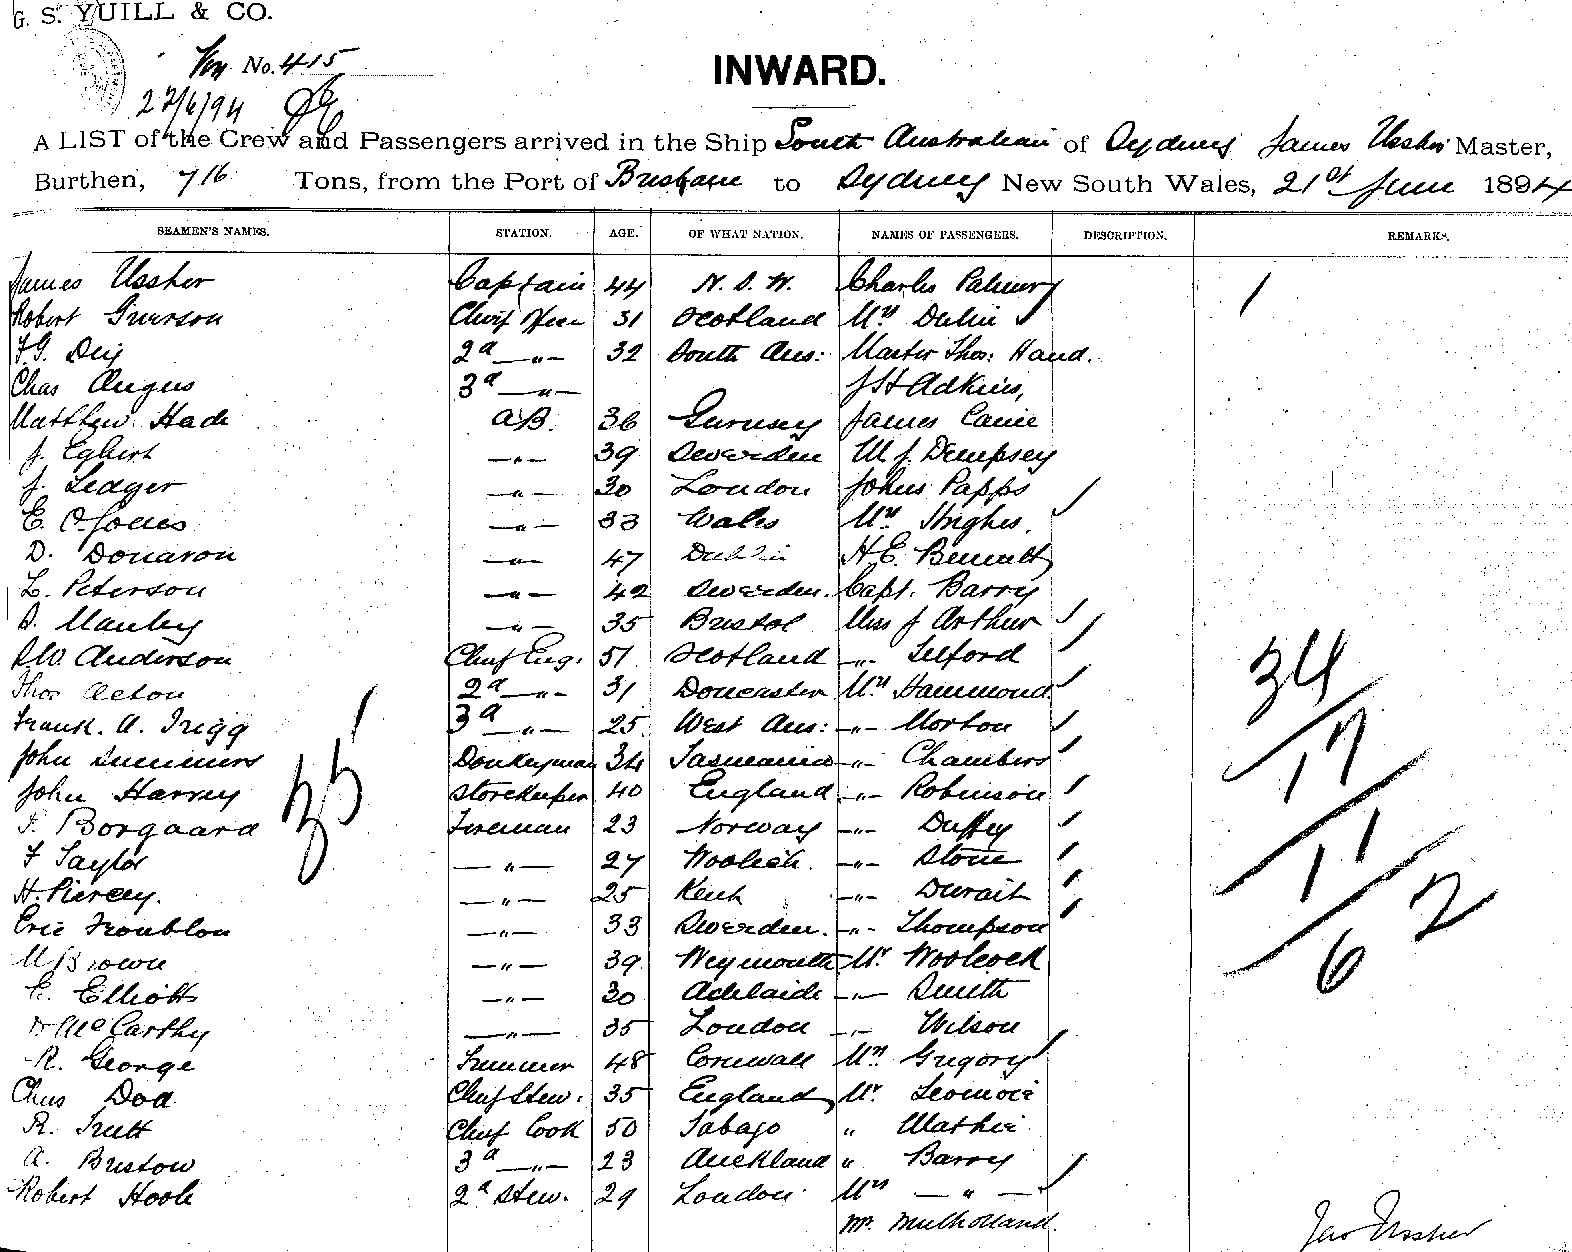 G. S. YUILL & CO.
No. 415
27/6/94
INWARD.
A LIST of the Crew and Passengers arrived in the Ship South Australian of Sydney James Ussher Master,
Burthen, 716 Tons, from the Port of Brisbane to Sydney New South Wales, 21st June 1894
SEAMEN'S NAMES. STATION. AGE. OF WHAT NATION. NAMES OF PASSENGERS. DESCRIPTION. REMARKS.
James Ussher Captain 44 N. S. W. Charles Palmer 1
Robert Grierson Chief Officer 31 Scotland Mrs
F.G. 2d —"— 32 South Aus: Master Thos: Hand.
Chas Angus 3d —"— J H Adkins,
Matthew Hade AB. 36 Guernsey James Canie
J. Egbert —"— 39 Sweeden M J. Dempsey
J. Ledger —"— 30 London Johns Papps
E. O. Jones —"— 33 Wales Mrs Hughes.
D. Donavon —"— 47 Dublin H. E. Bennett
L. Peterson —"— 42 Sweeden. Capt. Barry
S. Manley —"— 35 Bristol Miss J Arthur
Anderson Chief Eng. 51 Scotland —"— Telford 34
Thos Acton 2d —"— 31 Doncaster Mrs Hammond
Frank. A. Trigg 3d —"— 25 West Aus: —"— Morton 17
John Summers Donkeyman 34 Tasmania —"— Chambers
John Harvey 35 Storekeeper 40 England —"— Robinson
Borgaard Fireman 23 Norway —"— Duffey 11
F Taylor —"— 27 Woolich. —"— Stone
H. Piercey. —"— 25 Kent —"— Durait 2
Eric Troublon —"— 33 Sweeden. —"— Thompson
Brown —"— 39 Weymouth Mr. Woolcock 6
E. Elliott —"— 30 Adelaide —"— Smith
McCarthy —"— 35 London —"— Wilson
R. George Trimmer 48 Cornwall Mrs Gregory
Chas Dod Chief Stew. 35 England Mr.
R. Trett Chief Cook 50 Tabago " Mathie
A. Bristow 3d —"— 23 Auckland " Barry
Robert Hoole 2d Stew. 29 London Mrs —"—
Mr. Mulholland.
Jas Ussher